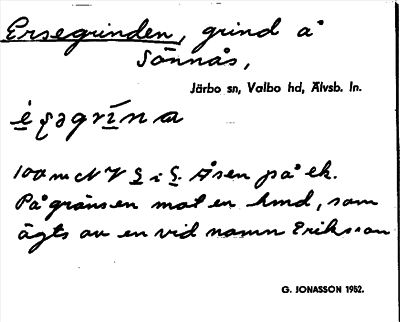 Ersegrinden, grind å
Sönnås,
Järbo sn, Valbo hd, Älvsb. ln.
100 m NV S i S. Åsen på ek.
På gränsen mot en hmd, som
ägts av en vid namn Eriksson
G. JONASSON 1952.